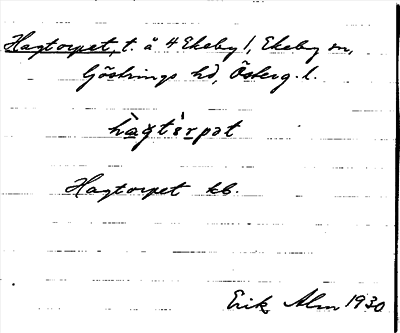 Hagtorpet, t. å 4 Ekeby 1, Ekeby sn,
Göstrings hd, Österg. l.
hàgtɜ̀rpət
Hagtorpet kb.
Erik Alm 1930